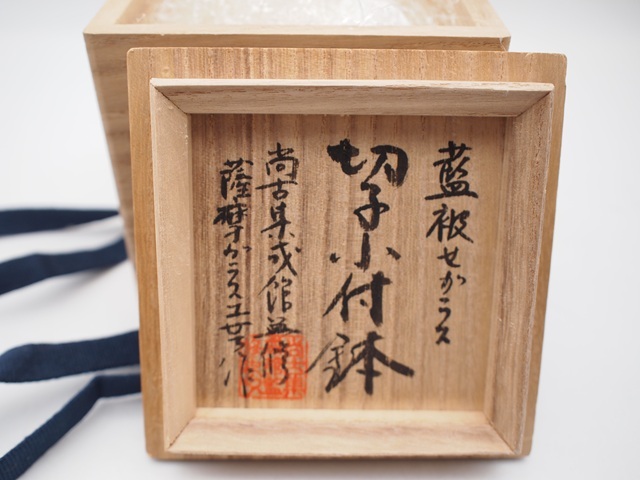 藍被せガラス
切子小付鉢
尚古集成館監修
薩摩ガラス工芸作